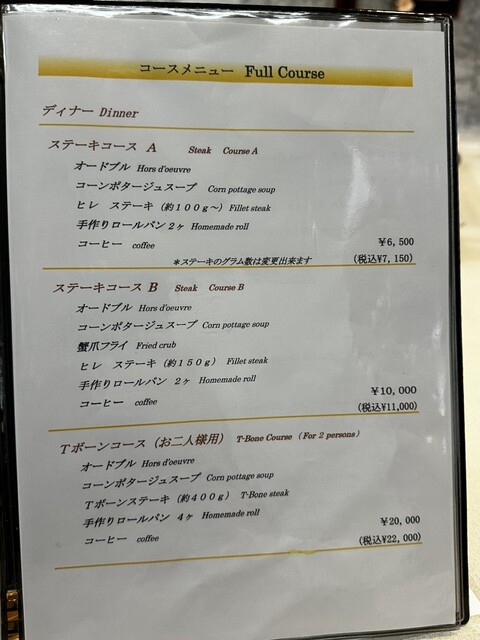 コースメニュー Full Course
ディナー Dinner
ステーキコース A Steak Course A
オードブル Hors d'oeuvre
コーンポタージュスープ Corn pottage soup
ヒレ ステーキ (約100g～) Fillet steak
手作りロールパン2ヶ Homemade roll
コーヒー coffee ¥6,500
*ステーキのグラム数は変更出来ます (税込¥7,150)
ステーキコース B Steak Course B
オードブル Hors d'oeuvre
コーンポタージュスープ Corn pottage soup
蟹爪フライ Fried crub
ヒレ ステーキ (約150g) Fillet steak
手作りロールパン 2ヶ Homemade roll
コーヒー coffee ¥10,000
(税込¥11,000)
Tボーンコース (お二人様用) T-Bone Course (For 2 persons)
オードブル Hors d'oeuvre
コーンポタージュスープ Corn pottage soup
Tボーンステーキ (約400g) T-Bone steak
手作りロールパン 4ヶ Homemade roll
コーヒー coffee ¥20,000
(税込¥22,000)